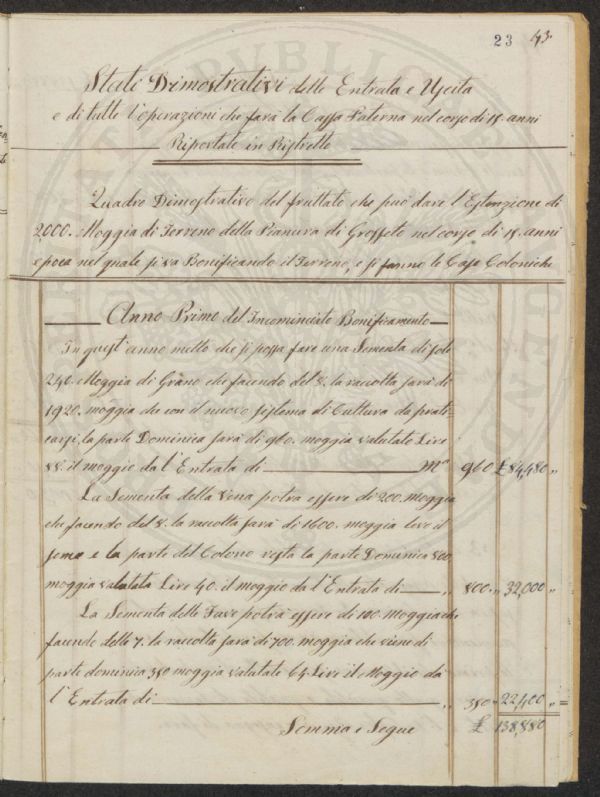 23 43.
Stati Dimostrativi delle Entrata e Uscita
e di tutte l'operazioni che farà la Cassa Paterna nel corso di 18. anni
Riportate in Ristretto
Quadro Dimostrativo del fruttato che può dare l'Estenzione di
2000. Moggia di Terreno della Pianura di Grosseto nel corso di 18. anni
epoca nel quale si va Bonificando il Terreno, e si fanno le Case Coloniche
Anno Primo del Incominciato Bonificamento
In quest'anno metto che si possa fare una Sementa di sole
240. Moggia di Grano che facendo del 8. la raccolta sarà di
1920. moggia che con il nuovo sistema di Cultura da prati-
carsi, la parte Dominica sarà di 960. moggia valutato Lire
88. il moggio da l'Entrata di Ma 960 £ 84,480 "
La Sementa della Vena potrà essere di 200. moggia
che facendo del 8. la raccolta sarà di 1600. moggia leve il
seme e la parte del Colono resta la parte Domenica 800,
moggia valutata Lire 40. il moggio da l'Entrata di " 800 " 32,000 "
La Sementa delle Fave potrà essere di 100. Moggia che
facendo delle 7. la raccolta sarà di 700. moggia che viene di
parte dominica 350 moggia valutate 64 Lire il Moggio dà
l'Entrata di " 350 " 22,400 "
Somma e Segue £ 138,880